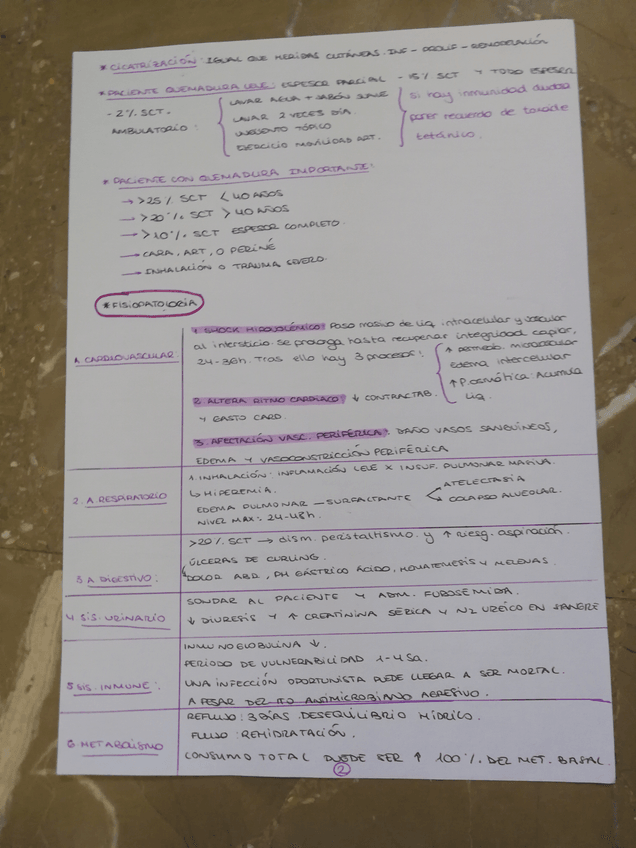 * CICATRIZACIÓN: IGUAL QUE HERIDAS CUTÁNEAS. INF - PROLIF - REMODELACIÓN
* PACIENTE QUEMADURA LEVE: ESPESOR PARCIAL - 15% SCT Y TODO ESPESOR
- 2% SCT.
AMBULATORIO:
LAVAR AGUA + JABÓN SUAVE
LAVAR 2 VECES DÍA.
UNGÜENTO TÓPICO
EJERCICIO MOVILIDAD ART.
Si hay inmunidad dudosa
poner recuerdo de toxoide
tetánico.
* PACIENTE CON QUEMADURA IMPORTANTE:
→ >25% SCT < 40 AÑOS
→ >20% SCT > 40 AÑOS
→ >10% SCT ESPESOR COMPLETO.
→ CARA, ART, O PERINÉ
→ INHALACIÓN O TRAUMA SEVERO.
* FISIOPATOLOGÍA
1. CARDIOVASCULAR:
1. SHOCK HIPOVOLÉMICO: Paso masivo de liq. intracelular y vascular
al intersticio. Se prolonga hasta recuperar integridad capilar,
24-36h. Tras ello hay 3 procesos:
↑ permeab. microvascular
Edema intercelular
↑ P. osmótica: Acumula
Liq.
2. ALTERA RITMO CARDÍACO: ↓ CONTRACTAB.
Y GASTO CARD.
3. AFECTACIÓN VASC. PERIFÉRICA: DAÑO VASOS SANGUÍNEOS,
EDEMA Y VASOCONSTRICCIÓN PERIFÉRICA
2. A. RESPIRATORIO
1. INHALACIÓN: INFLAMACIÓN LEVE X INSUF. PULMONAR MASIVA.
↳ HIPEREMIA.
EDEMA PULMONAR — SURFACTANTE < ATELECTASIA
COLAPSO ALVEOLAR.
NIVEL MAX: 24-48h.
3. A. DIGESTIVO:
>20% SCT → dism. peristaltismo y ↑ riesg. aspiración.
ÚLCERAS DE CURLING.
↳ DOLOR ABD, PH GÁSTRICO ÁCIDO, HEMATEMESIS Y MELENAS.
4. SIS. URINARIO
SONDAR AL PACIENTE Y ADM. FUROSEMIDA.
↓ DIURESIS Y ↑ CREATININA SÉRICA Y N2 UREICO EN SANGRE
5. SIS. INMUNE:
INMUNOGLOBULINA ↓.
PERIODO DE VULNERABILIDAD 1-4 Sa.
UNA INFECCIÓN OPORTUNISTA PUEDE LLEGAR A SER MORTAL.
A PESAR DEL TTO ANTIMICROBIANO AGRESIVO.
6. METABOLISMO
REFLUJO: 3 DÍAS. DESEQUILIBRIO HÍDRICO.
FLUJO: REHIDRATACIÓN.
CONSUMO TOTAL PUEDE SER ↑ 100% DEL MET. BASAL.
2